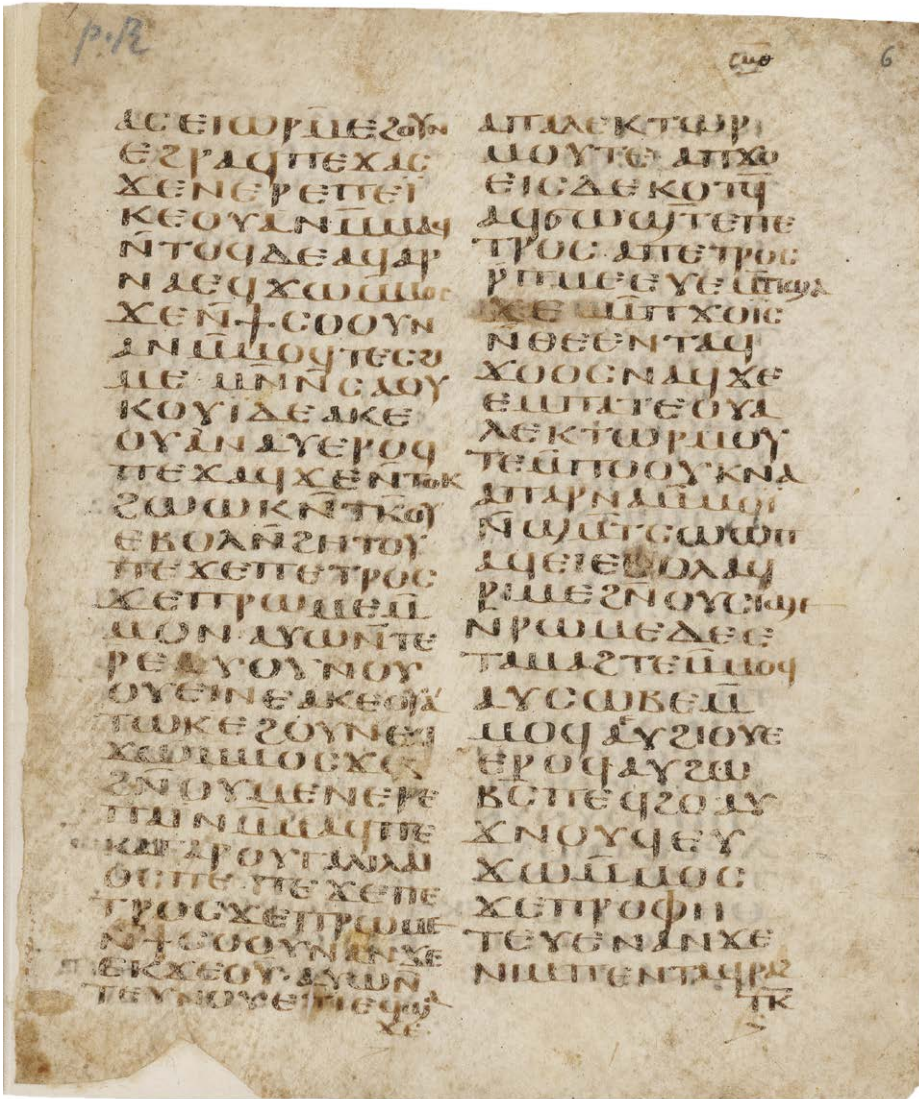 ⲥⲙⲑ
6
ⲁⲥⲉⲓⲱⲣⲙ̄ⲉϩⲟⲩⲛ
ⲉϩⲣⲁϥⲡⲉϫⲁⲥ
ϫⲉⲛⲉⲣⲉⲡⲉⲓ̈
ⲕⲉⲟⲩⲁⲛⲙ̄ⲙⲁϥ
ⲛ̄ⲧⲟϥⲇⲉⲁϥⲁⲣ
ⲛⲁⲉϥϫⲱⲙ̄ⲙⲟⲥ
ϫⲉⲛ̄ϯⲥⲟⲟⲩⲛ
ⲁⲛⲙ̄ⲙⲟϥⲧⲉⲥϩⲓ
ⲙⲉ ⲙⲛ̄ⲛ̄ⲥⲁⲟⲩ
ⲕⲟⲩⲓ̈ⲇⲉⲁⲕⲉ
ⲟⲩⲁⲛⲁⲩⲉⲣⲟϥ
ⲡⲉϫⲁϥϫⲉⲛ̄ⲧⲟⲕ
ϩⲱⲱⲕⲛ̄ⲧⲕ̄ⲟⲩ
ⲉⲃⲟⲗⲛ̄ϩⲏⲧⲟⲩ
ⲡⲉϫⲉⲡⲉⲧⲣⲟⲥ
ϫⲉⲡⲣⲱⲙⲉⲙ̄
ⲙⲟⲛ ⲁⲩⲱⲛ̄ⲧⲉ
ⲣⲉⲁⲩⲟⲩⲛⲟⲩ
ⲟⲩⲉⲓⲛⲉⲁⲕⲉⲟⲩⲁ
ⲧⲱⲕⲉϩⲟⲩⲛⲉϥ
ϫⲱⲙ̄ⲙⲟⲥϫⲉ
ϩⲛ̄ⲟⲩⲙⲉⲛⲉⲣⲉ
ⲡⲁⲓ̈ⲛⲙ̄ⲙⲁϥⲡⲉ
ⲕⲁⲓⲅⲁⲣⲟⲩⲅⲁⲗⲓⲗⲁⲓ
ⲟⲥⲡⲉ ⲡⲉϫⲉⲡⲉ
ⲧⲣⲟⲥϫⲉⲡⲣⲱⲙⲉ
ⲛ̄ϯⲥⲟⲟⲩⲛⲁⲛϫⲉ
ⲉⲕϫⲉⲟⲩ ⲁⲩⲱⲛ̄
ⲧⲉⲩⲛⲟⲩⲉⲧⲓⲉϥϣⲁ
ϫⲉ
ⲁⲡⲁⲗⲉⲕⲧⲱⲣ
ⲙⲟⲩⲧⲉ ⲁⲡϫⲟ
ⲉⲓⲥⲇⲉⲕⲟⲧϥ̄
ⲁϥϭⲱϣⲧⲉⲡⲉ
ⲧⲣⲟⲥ ⲁⲡⲉⲧⲣⲟⲥ
ⲣ̄ⲡⲙⲉⲉⲩⲉⲙ̄ⲡϣⲁ
ϫⲉ ⲙ̄ⲡϫⲟⲓ̈ⲥ
ⲛ̄ⲑⲉⲉⲛⲧⲁϥ
ϫⲟⲟⲥⲛⲁϥϫⲉ
ⲉⲙⲡⲁⲧⲉⲟⲩⲁ
ⲗⲉⲕⲧⲱⲣⲙⲟⲩ
ⲧⲉⲙ̄ⲡⲟⲟⲩⲕⲛⲁ
ⲁⲡⲁⲣⲛⲁⲙ̄ⲙⲟⲓ̈
ⲛ̄ϣⲙ̄ⲧⲥⲱⲱⲡ
ⲁϥⲉⲓⲉⲃⲟⲗⲁϥ
ⲣⲓⲙⲉϩⲛⲟⲩⲥⲓϣⲉ
ⲛⲣⲱⲙⲉⲇⲉⲉⲧ
ⲧⲁⲙⲁϩⲧⲉⲙ̄ⲙⲟϥ
ⲁⲩⲥⲱⲃⲉⲙ̄
ⲙⲟϥ ⲁⲩϩⲓⲟⲩⲉ
ⲉⲣⲟϥ ⲁⲩϩⲱ
ⲃⲥⲡⲉϥϩⲟ ⲁⲩ
ϫⲛⲟⲩϥⲉⲩ
ϫⲱⲙ̄ⲙⲟⲥ
ϫⲉⲡⲣⲟⲫⲏ
ⲧⲉⲩⲉⲛⲁⲛϫⲉ
ⲛⲓⲙⲡⲉⲛⲧⲁϥⲣⲁϩ
ⲧⲕ̄